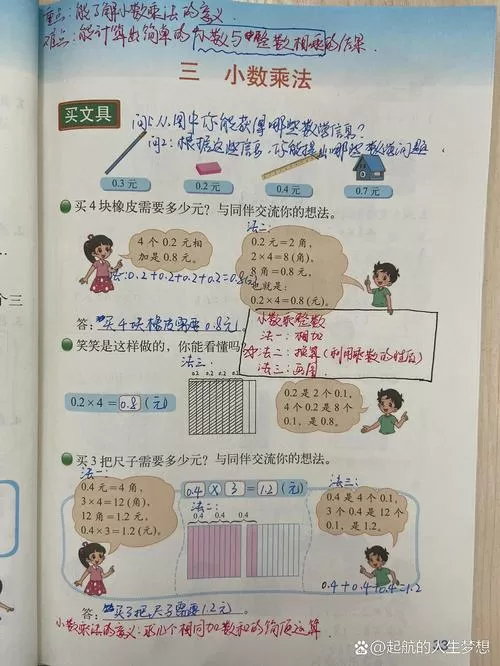 重点：能了解小数乘法的意义
难点：能计算出简单的小数与整数相乘的结果
三 小数乘法
买文具
问1：从图中你能获得哪些数学信息？
问2：根据这些信息，你能提出哪些数学问题
0.3 元
0.2 元
0.4 元
0.7 元
买 4 块橡皮需要多少元？与同伴交流你的想法。
4 个 0.2 元相
加是 0.8 元。
法一:0.2+0.2+0.2+0.2=0.8(元)
法二：
0.2 元＝2 角，
2×4＝8(角)，
8 角＝0.8 元，
也就是：
0.2×4＝0.8(元)。
答：买4块橡皮需要0.8元
小数乘整数
法一：相加
法二：换算(利用乘数的性质)
法三：画图
笑笑是这样做的，你能看懂吗？
法三：
0.2 0.2 0.2 0.2
0.2×4＝0.8(元)
0.2 是 2 个 0.1，
4 个 0.2 是 8 个
0.1，是 0.8。
买 3 把尺子需要多少元？与同伴交流你的想法。
法一：
0.4 元＝4 角，
3×4＝12(角)，
12 角＝1.2 元，
0.4×3＝1.2(元)。
0.4×3＝1.2(元)
法二：
0.4 0.4 0.4
法三：
0.4 是 4 个 0.1，
3 个 0.4 是 12 个
0.1，是 1.2。
0.4+0.4+0.4=1.2
答：买3把尺子需要1.2元。
小数乘法的意义：求几个相同加数和的简便运算
33
@起航的人生梦想